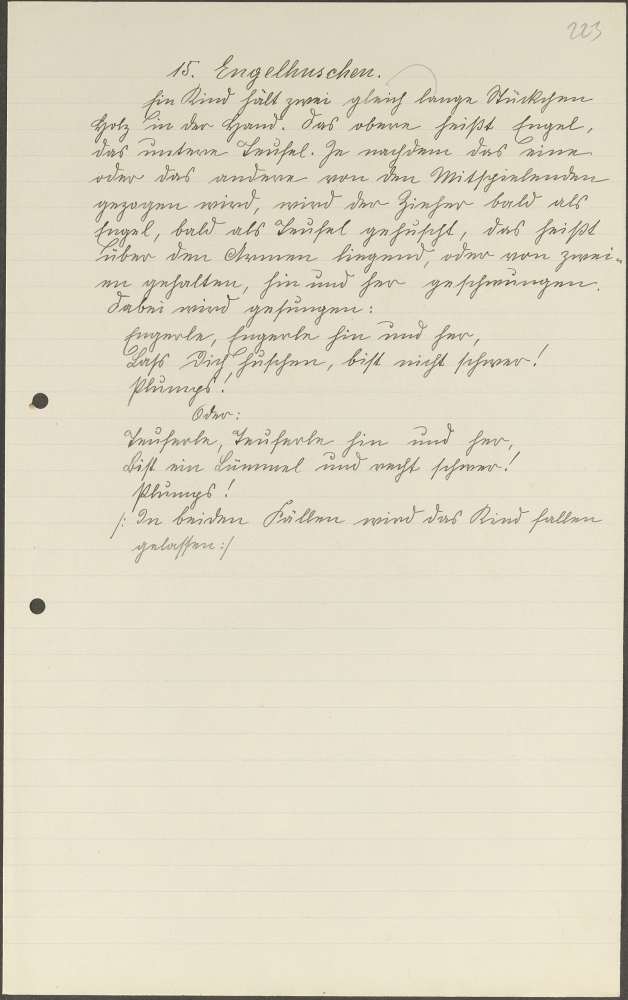 223
15. Engelhuschen.
Ein Kind hält zwei gleich lange Stückchen
Holz in der Hand. Das obere heißt Engel,
das untere Teufel. Je nachdem das eine
oder das andere von den Mitspielenden
gezogen wird, wird der Zieher bald als
Engel, bald als Teufel gehuscht, das heißt
über den Armen liegend, oder von zwei-
en gehalten, hin und her geschwungen.
Dabei wird gesungen:
Engerle, Engerle hin und her,
Lass Dich huschen, bist nicht schwer!
Plumps!
Oder:
Teuferle, Teuferle hin und her,
Bist ein Lümmel und recht schwer!
Plumps!
/: In beiden Fällen wird das Kind fallen
gelassen :/